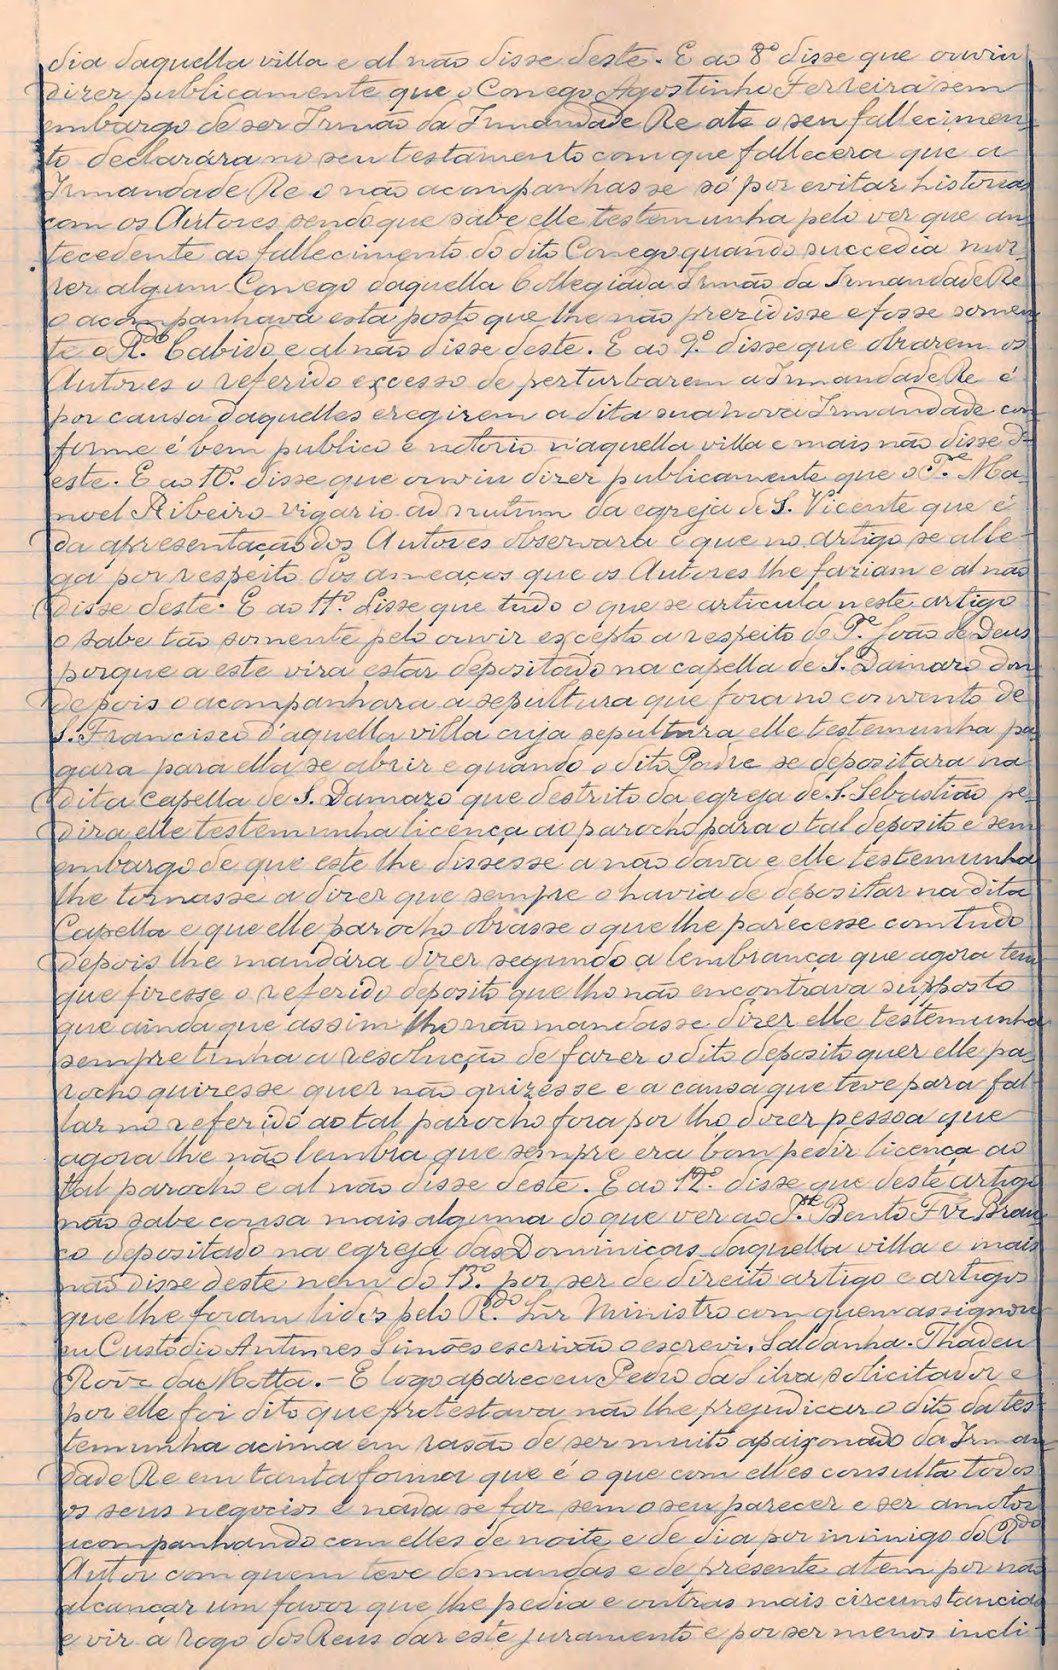 dia daquella villa e al não disse deste. E ao 8º disse que ouviu
dizer publicamente que o Conego Agostinho Ferreira sem
embargo de ser Irmão da Irmandade Re ate o seu fallecimen-
to declarára no seu testamento com que fallecera que a
Irmandade Re o não acompanhasse só por evitar historias
com os Autores sendo que sabe elle testemunha pelo ver que an-
tecedente ao fallecimento do dito Conego quando succedia mor-
rer algum Conego daquella Collegiada Irmão da Irmandade Re
o acompanhava esta posto que lhe não prezidisse e fosse somen-
te o R.do Cabido e al não disse deste. E ao 9.º disse que obrarem os
Autores o referido excesso de perturbarem a Irmandade Re é
por causa daquelles eregirem a dita sua nova Irmandade con
forme é bem publico e notorio n'aquella villa e mais não disse d-
este. E ao 10.º disse que ouviu dizer publicamente que o P.e Ma-
noel Ribeiro vigario ad nutum da egreja de S. Vicente que é
da apresentação dos Autores observara o que no artigo se alle-
ga por respeito dos ameaços que os Autores lhe faziam e al não
disse deste. E ao 11.º disse que tudo o que se articula neste artigo
o sabe tão somente pelo ouvir excepto a respeito do P.e João de Deus
porque a este vira estar depositado na capella de S. Damazo don-
de pois o acompanhara a sepultura que fora no convento de
S. Francisco d'aquella villa cuja sepultura elle testemunha pa-
gara para ella se abrir e quando o dito Padre se depositara na
dita capella de S. Damazo que destrito da egreja de S. Sebastião pe-
dira elle testemunha licença ao parocho para o tal deposito e sem
embargo de que este lhe dissesse a não dava e elle testemunha
lhe tornasse a dizer que sempre o havia de depositar na dita
Capella e que elle parocho obrasse o que lhe parecesse comtudo
depois lhe mandára dizer segundo a lembrança que agora tem
que fizesse o referido deposito que lho não encontrava supposto
que ainda que assim lho não mandasse dizer elle testemunha
sempre tinha a resolução de fazer o dito deposito quer elle pa-
rocho quizesse quer não quizesse e a causa que teve para fal-
lar no referido ao tal parocho fora por lho dizer pessoa que
agora lhe não lembra que sempre era bom pedir licença ao
tal parocho e al não disse deste. E ao 12.º disse que deste artigo
não sabe cousa mais alguma do que ver ao P.e Bento Frz Bran
co depositado na egreja das Dominicas daquella villa e mais
não disse deste nem do 13.º por ser de direito artigo e artigos
que lhe foram lidos pelo R.do Snr Ministro com quem assignou
eu Custodio Antunes Simões escrivão o escrevi. Saldanha. Thadeu
da Motta. — E logo appareceu Pedro da Silva solicitador e
por elle foi dito que protestava não lhe prejudicar o dito da tes-
temunha acima em rasão de ser muito apaixonado da Irman-
dade Re em tanta forma que é o que com elles consulta todos
os seus negocios e nada se faz sem o seu parecer e ser amotor
acompanhando com elles de noite e de dia por inimigo do R.do
Autor com quem teve demandas e de presente atem por não
alcançar um favor que lhe pedia e outras mais circunstancias
e vir a rogo dos Reus dar este juramento e por ser menos incli-